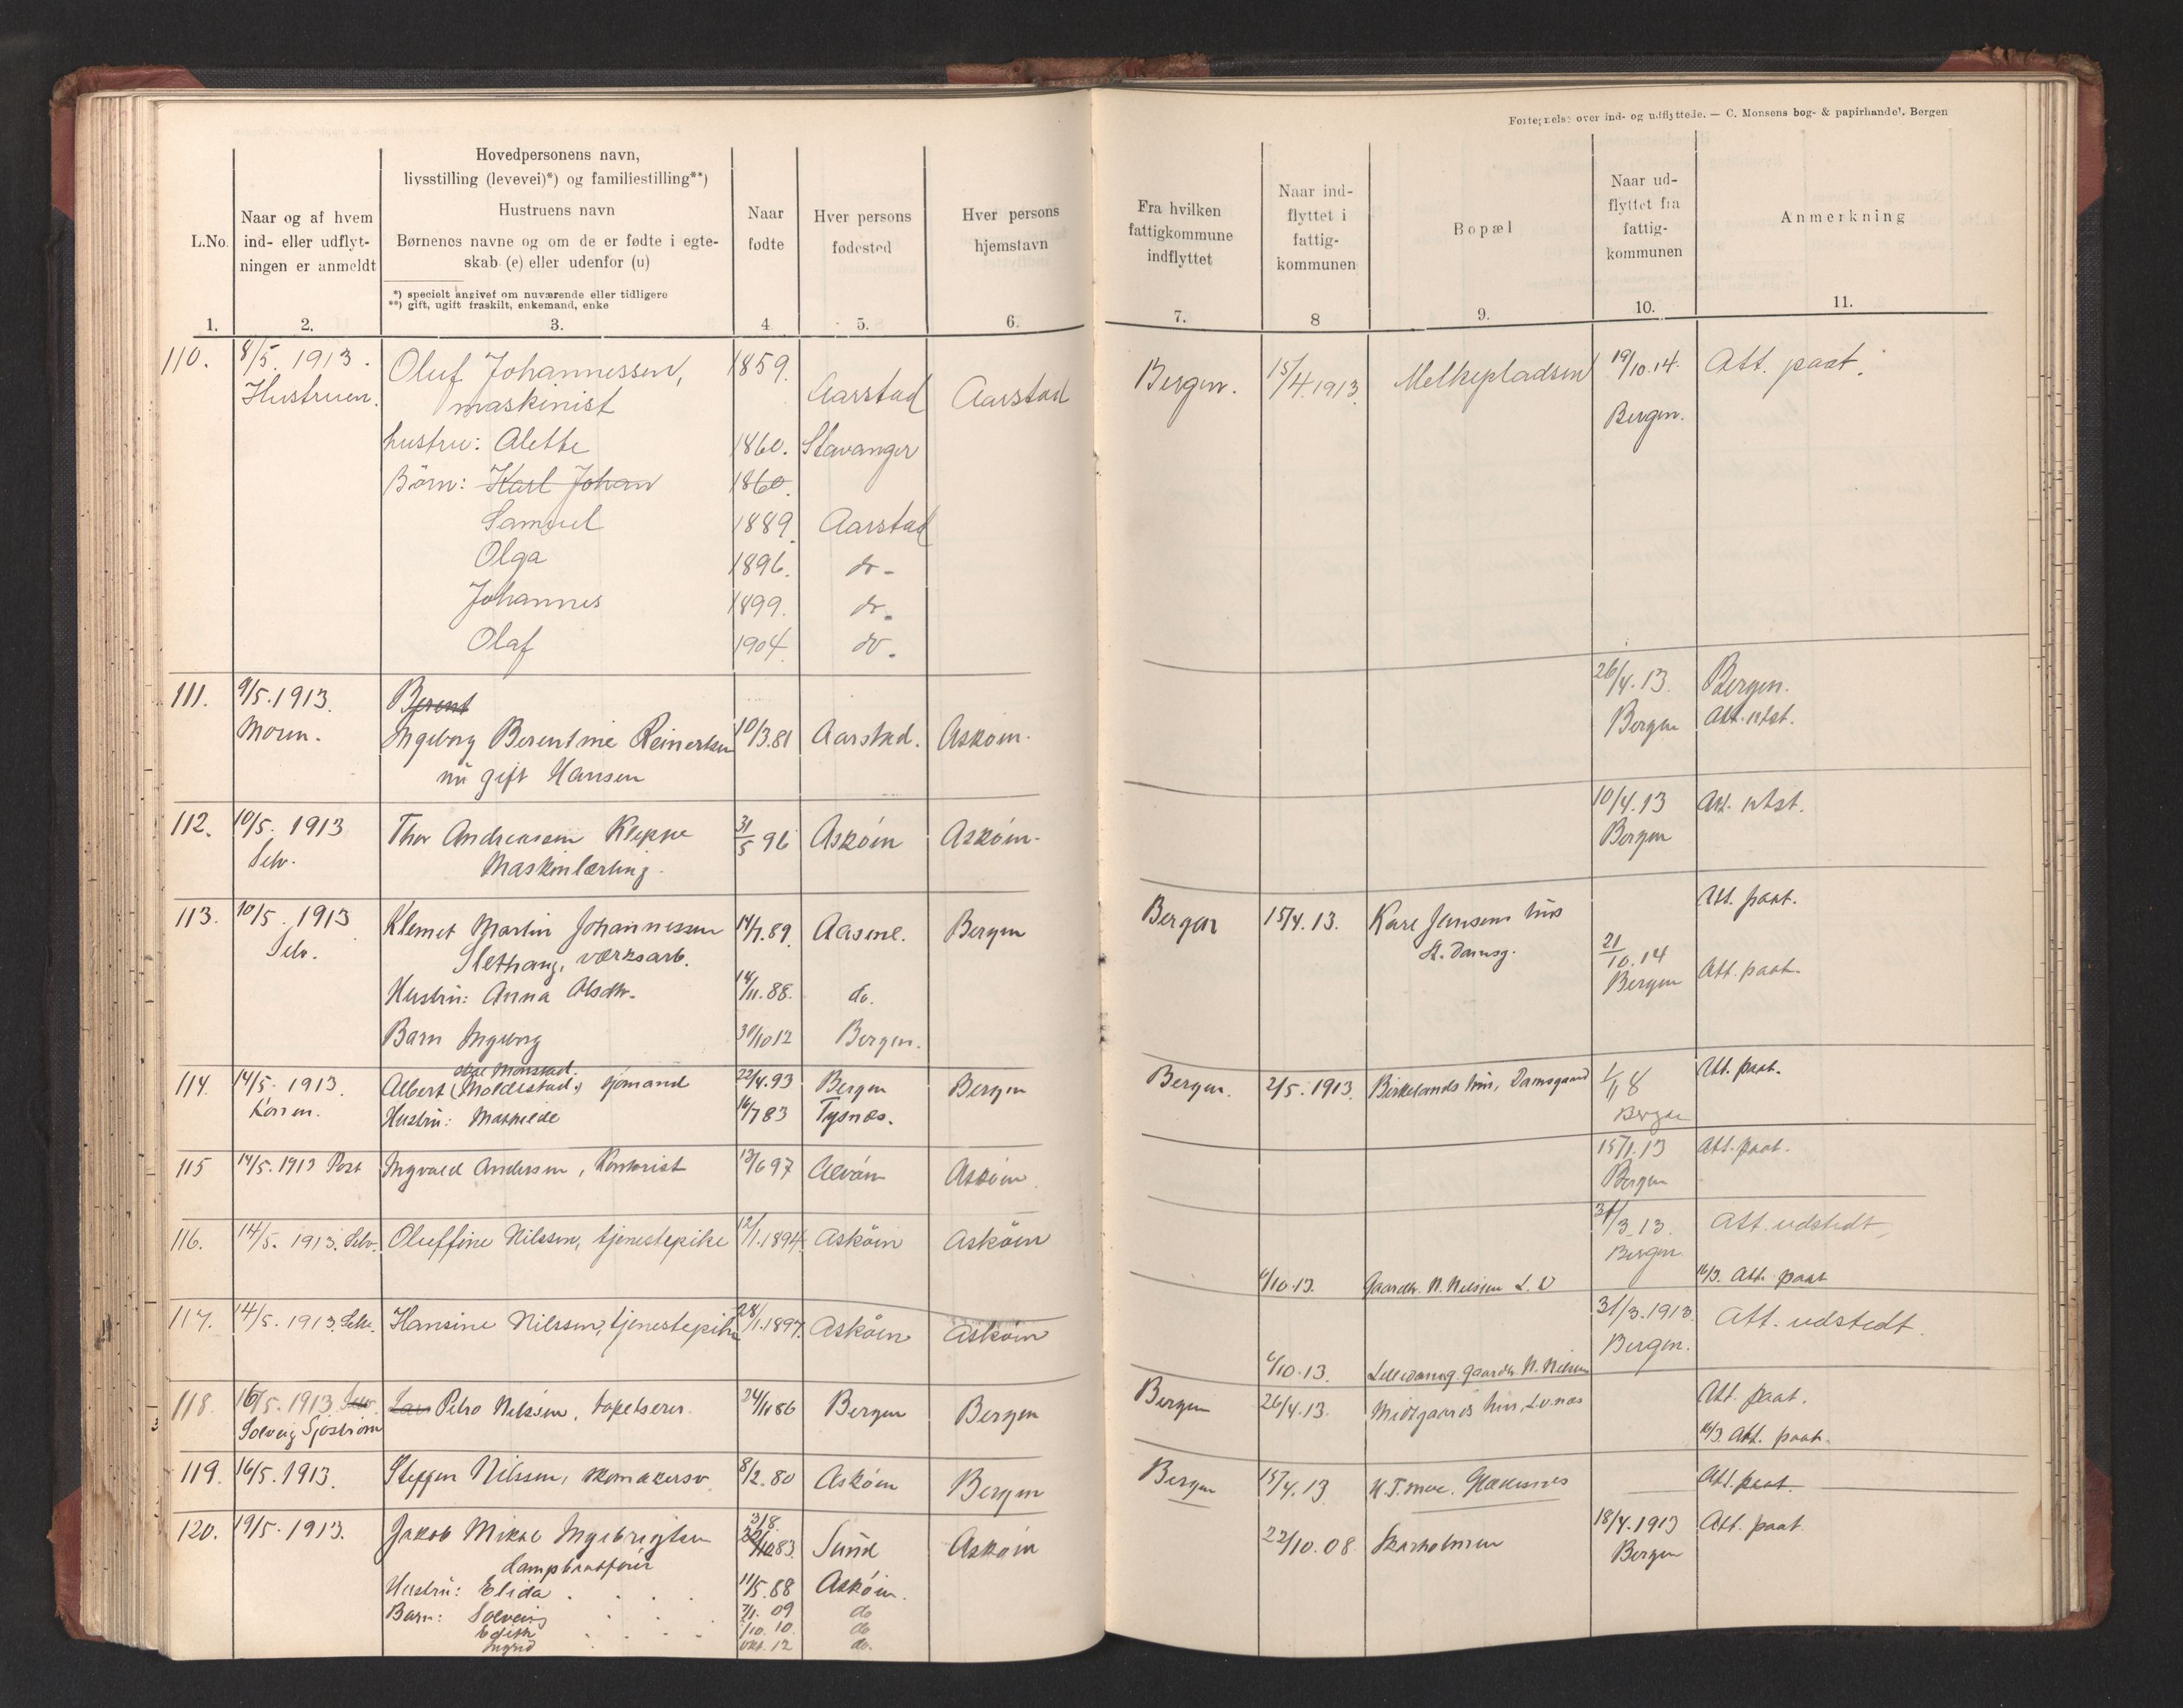 Fortegnelse over ind- og udflyttede. — C. Monsens bog- & papirhandel. Bergen
L.No.
Naar og af hvem
ind- eller udflyt-
ningen er anmeldt
Hovedpersonens navn,
livsstilling (levevei)*) og familiestilling**)
Hustruens navn
Børnenes navne og om de er fødte i egte-
skab (e) eller udenfor (u)
*) specielt angivet om nuværende eller tidligere
**) gift, ugift fraskilt, enkemand, enke
Naar
fødte
Hver persons
fødested
Hver persons
hjemstavn
Fra hvilken
fattigkommune
indflyttet
Naar ind-
flyttet i
fattig-
kommunen
Bopæl
Naar ud-
flyttet fra
fattig-
kommunen
Anmerkning
1. 2. 3. 4. 5. 6. 7. 8 9. 10. 11.
110. 8/5. 1913. Oluf Johannessen, 1859. Bergen. 15/4.1913. Melkepladsen 19/10.14. Att. paat.
Hustruen. maskinist Aarstad Aarstad Bergen.
hustru: Alette 1860. Stavanger
Börn: Karl Johan 1860.
Samuel 1889. Aarstad
Olga 1896. do -
Johannes 1899. do -
Olaf 1904. do -
111. 9/5. 1913. Berent 26/4.13. Bergen.
Moren. Ingeborg Berentine Reinertsen 10/3.81 Aarstad. Asköen. Bergen Att. utst.
nu gift Hansen
112. 10/5. 1913 Thor Andreassen Kleppe 31/5 96 Asköen Asköen. 10/4.13 Att. utst.
Selv. Maskinlærling. Bergen
113. 10/5. 1913 Klemet Martin Johannessen 14/7.89. Aasene. Bergen Bergen 15/4.13. Kare Jensens hus Att. paat.
Selv. Slethaug, værksarb. St. Damsg. 21/10.14
Hustru: Anna Olsdtr. 14/11.88. do. Bergen Att. paat.
Barn Ingeborg 30/10 12 Bergen.
skal Monstad.
114. 14/5. 1913. Albert (Moldestad.) sjömand 22/4.93 Bergen Bergen Bergen. 2/5. 1913. Birkelands hus, Damsgaard 1/11 8 Att. paat.
Konen. Hustru: Mathilde 16/7 83 Tysnæs. Bergen
115 14/5. 1913 Post Ingvald Andersen, Kontorist 13/6 97 Alvöen Asköen. 15/1.13 Att. paat.
Bergen
116. 14/5. 1913. Selv. Oluffine Nilssen, tjenestepike 12/1.1894 Asköen Asköen 31/3.13. Att. udstedt,
Bergen.
6/10.13. Gaardbr. N. Nilssen L. D 16/3. Att. paat
117. 14/5. 1913. Selv. Hansine Nilssen, tjenestepike 28/1.1897. Asköen Asköen 31/3.1913. Att. udstedt.
Bergen.
6/10.13. Lilledamsg. Gaardbr. N. Nilssen
118. 16/5. 1913. Selv. Lars Petro Nilssen, tapetserer. 24/11 86 Bergen Bergen Bergen 26/4.13. Midtgaards hus, Lvnæs Att. paat.
Solveig Sjöström 16/3. Att. paat.
119. 16/5. 1913. Steffen Nilssen, skomakersv. 8/2.80 Asköen Bergen Bergen 15/4.13 Att. paat.
120. 19/5. 1913. Jakob Mikal Ingebrigtsen 31/8 83. Sund Asköen 22/10.08. Skarholmen 18/4.1913 Att. paat.
dampbaatförer Bergen
Hustru: Elida 11/5.88 Asköen.
Barn: Solveig 7/1. 09 do
Edith 1/10. 10. do
Ingrid okt. 12 do.